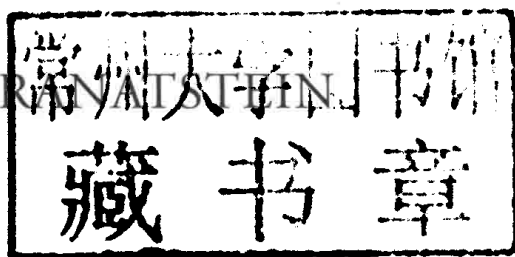 常州大学图书馆
RANATSTEIN
藏书章